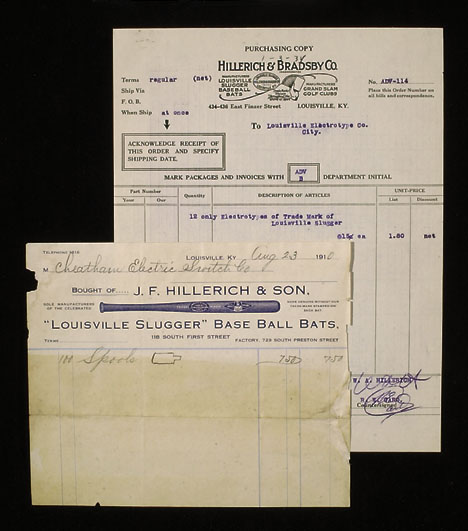 PURCHASING COPY
1-3-34
HILLERICH & BRADSBY CO.
MANUFACTURERS
LOUISVILLE
SLUGGER
BASEBALL
BATS
MANUFACTURERS
GRAND SLAM
GOLF CLUBS
434-436 East Finzer Street LOUISVILLE, KY.
Terms regular (net)
Ship Via
F. O. B.
When Ship at once
No. ADV-114
Place this Order Number on
all bills and correspondence.
To Louisville Electrotype Co.
City.
ACKNOWLEDGE RECEIPT OF
THIS ORDER AND SPECIFY
SHIPPING DATE.
MARK PACKAGES AND INVOICES WITH ADV B DEPARTMENT INITIAL
Part Number Quantity DESCRIPTION OF ARTICLES UNIT-PRICE
Your Our List Discount
12 only Electrotypes of Trade Mark of
Louisville Slugger
@15¢ ea 1.80 net
W. A. HILLERICH
Countersigned
TELEPHONE
LOUISVILLE KY. Aug 23 191
M Cheatham Electric Switch Co.
BOUGHT OF..... J. F. HILLERICH & SON,
SOLE MANUFACTURERS
OF THE CELEBRATED
NONE GENUINE WITHOUT OUR
TRADE MARK STAMPED ON
EACH BAT
"LOUISVILLE SLUGGER" BASE BALL BATS,
TERMS 118 SOUTH FIRST STREET FACTORY, 729 SOUTH PRESTON STREET
100 Spools 750 750